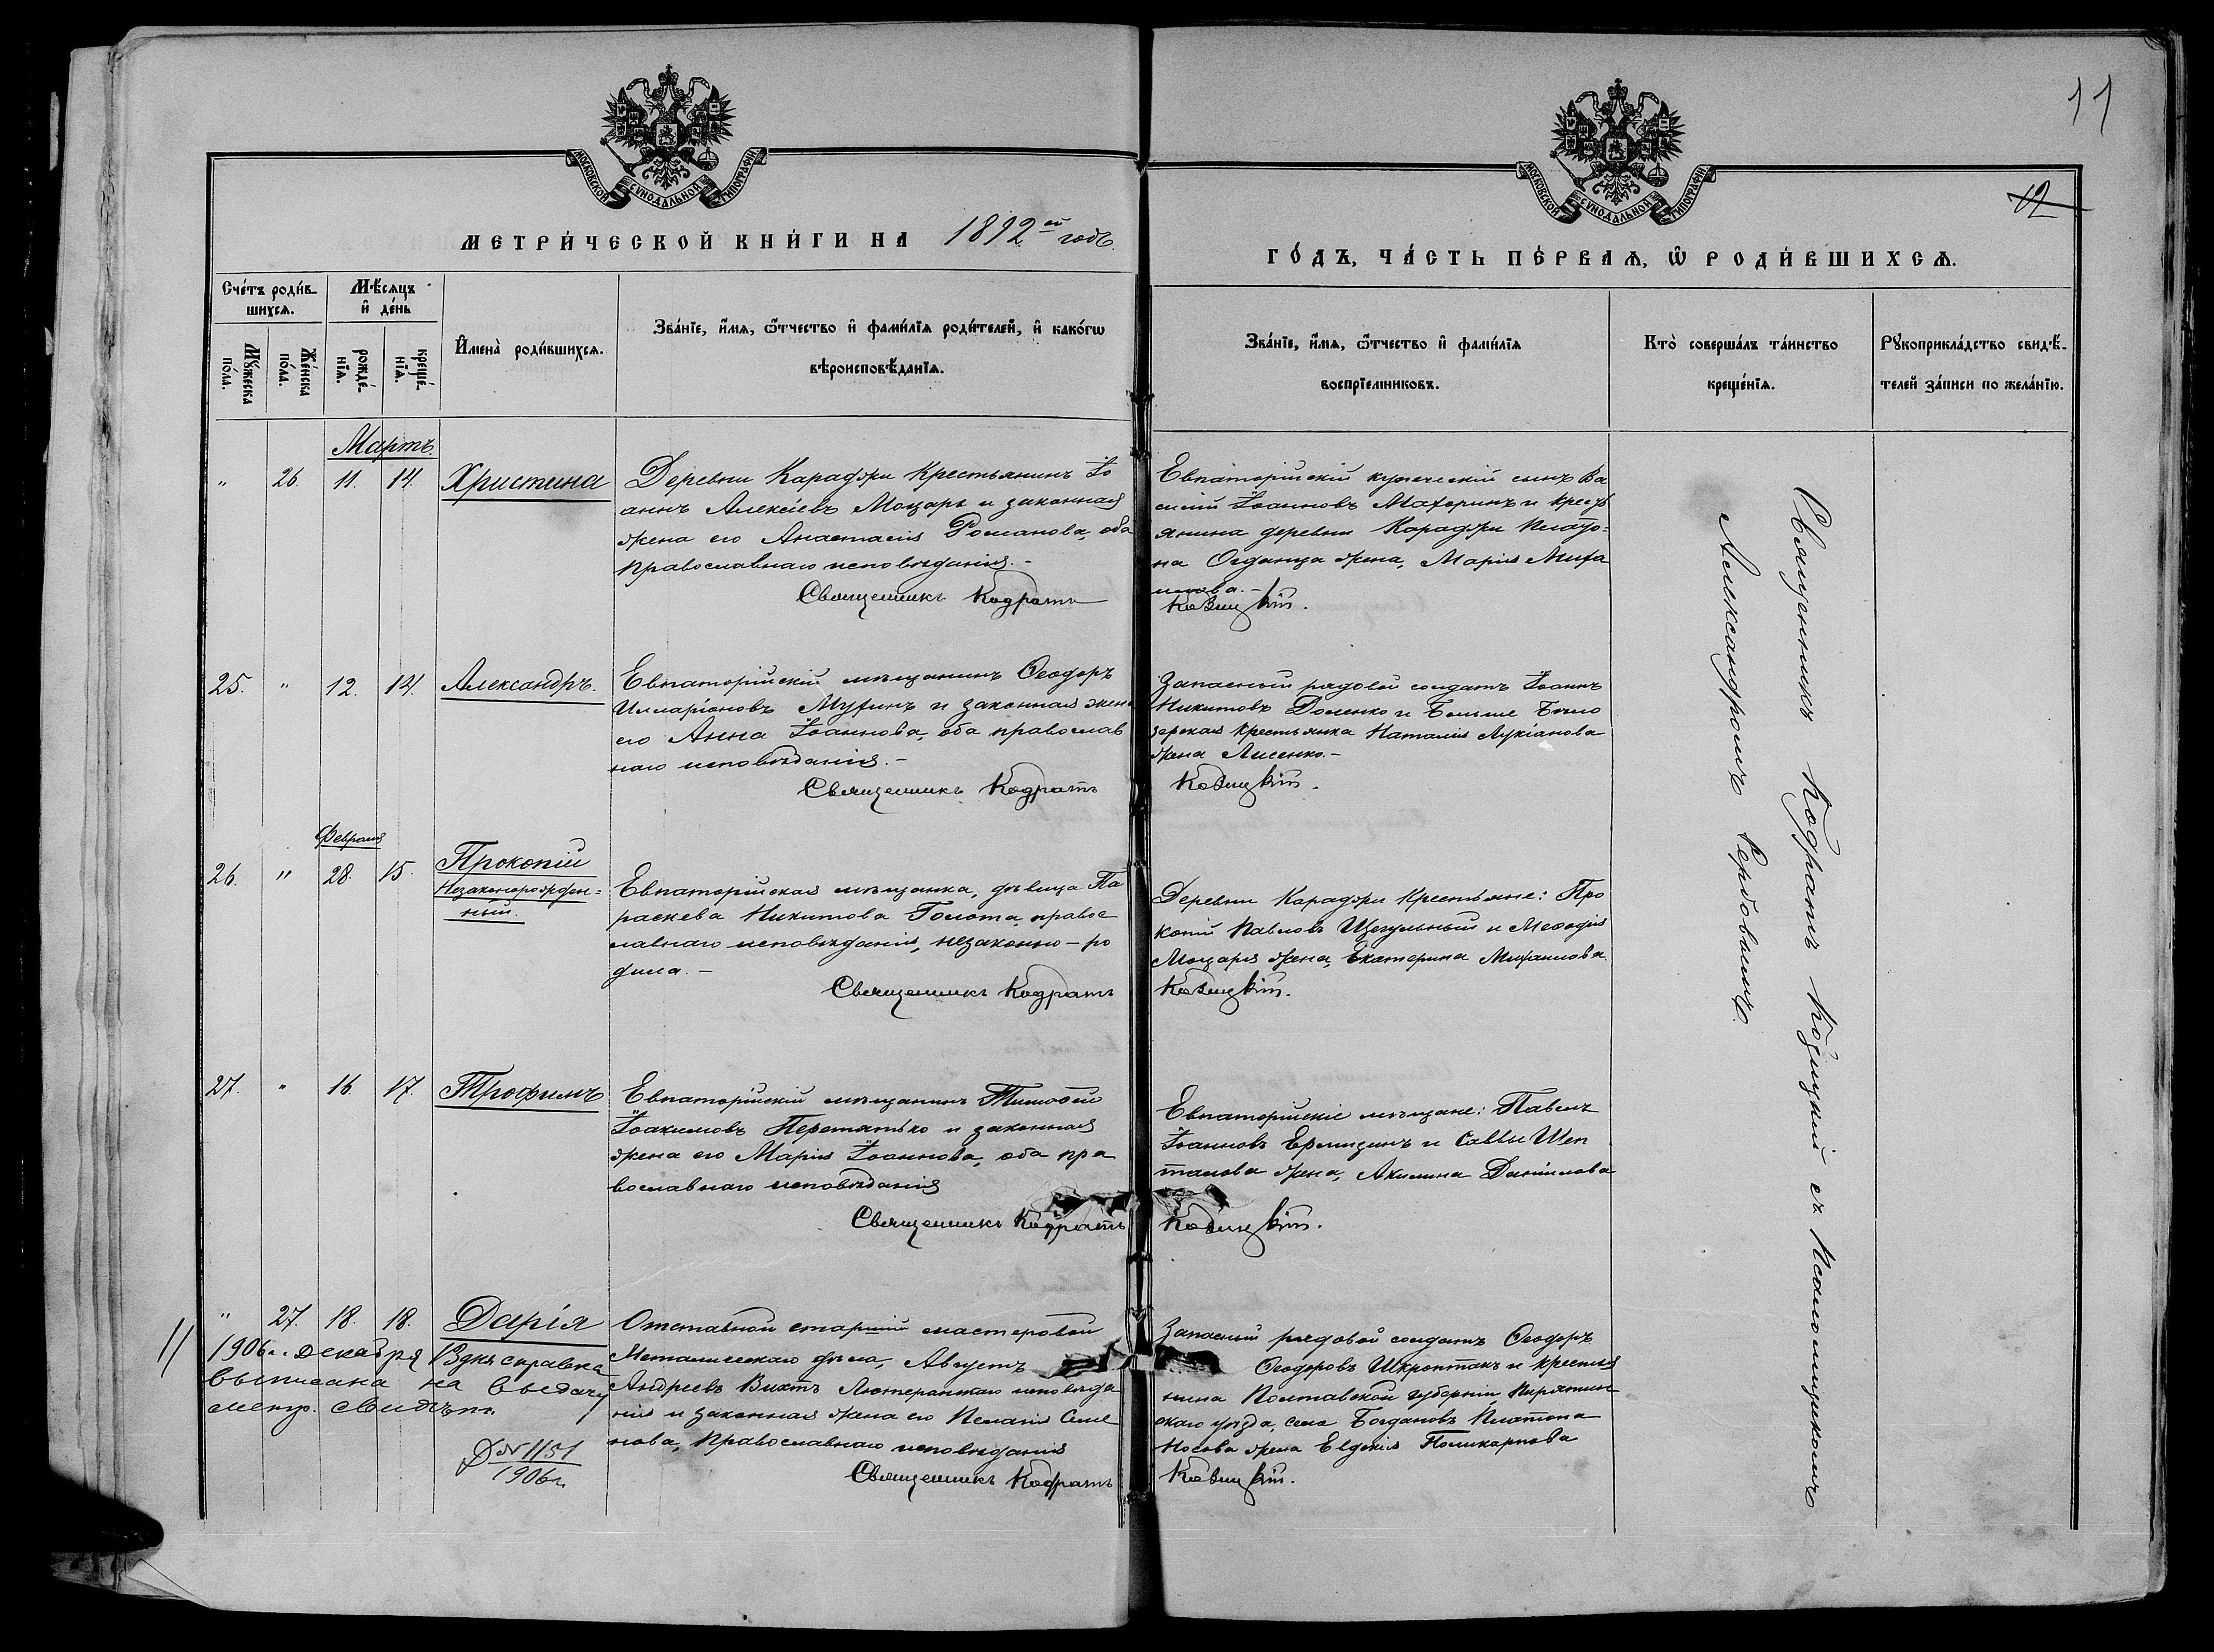 11
12
МОСКОВСКОЙ СУНОДАЛЬНОЙ ТИПОГРАФІИ
МОСКОВСКОЙ СУНОДАЛЬНОЙ ТИПОГРАФІИ
МЕТРИ́ЧЕСКОЙ КНИ́ГИ НА 1892ой годъ.
ГО́ДЪ, ЧА́СТЬ ПЕ́РВАѦ, Ѿ РОДИ́ВШИХСѦ.
Сче́тъ роди́в-
шихсѧ.
Мѣ́сѧцъ
и҆ де́нь
Мꙋжеска
по́ла.
Же́нска
по́ла.
рожде́-
нїѧ.
креще́-
нїѧ.
И҆мена̀ роди́вшихсѧ.
Зва́нїе, и҆́мѧ, ѻ҆́тчество и҆ фами́лїѧ роди́телей, и҆ како́гѡ
вѣроисповѣ́данїѧ.
Зва́нїе, и҆́мѧ, ѻ҆́тчество и҆ фами́лїѧ
воспрїе́мниковъ.
Кто̀ соверша́лъ та́инство
креще́нїѧ.
Рꙋкоприкла́дство свидѣ́-
телей за́писи по жела́нїю.
Мартъ.
" 26. 11. 14. Христина
Деревни Караджи Крестьянинъ Іо
аннъ Алексіевъ Моцарь и законная
жена его Анастасія Романова, оба
православнаго исповѣданія.-
Священникъ Кодратъ
Евпаторійскій купеческій сынъ Ва
силій Іоанновъ Махоринъ и крестъ
янина деревни Караджи Плато=
на Огданца жена, Марія Миха
илова.-
Козицкій.
25. " 12. 14. Александръ.
Евпаторійскій мѣщанинъ Ѳеодоръ
Илларіоновъ Мухинъ и законная жена
его Анна Іоаннова, оба православ
наго исповѣданія.-
Священникъ Кодратъ
Запасный рядовой солдатъ Іоаннъ
Никитовъ Доленко и Больше Бѣло
зерская крестьянка Наталія Лукіанова
жена Лисенко.-
Козицкій.
Февраля
26. " 28. 15. Прокопій
Незаконорожден=
ный.
Евпаторійская мѣщанка, дѣвица Па
раскева Никитова Голота, правос
лавнаго исповѣданія, незаконно-ро
дила.-
Священникъ Кодратъ
Деревни Караджи Крестьяне: Про
копій Павловъ Щегульный и Меѳодія
Моцаря жена, Екатерина Михаилова.
Козицкій.
27. " 16. 17. Трофимъ
Евпаторійскій мѣщанинъ Тимоѳей
Іоакимовъ Перетятько и законная
жена его Марія Іоаннова, оба пра
вославнаго исповѣданія
Священникъ Кодратъ
Евпаторійскіе мѣщане: Павелъ
Іоанновъ Ермизинъ и Саввы Шеп
талова жена, Акилина Даніилова
Козицкій.
" 27. 18. 18. Дарія
Отставной старшій мастеровой
Металическаго дѣла, Августъ
Андреевъ Вихтъ Лютеранскаго исповѣда
нія и законная жена его Пелагія Семе
нова, Православнаго исповѣданія
Священникъ Кодратъ
Запасный рядовой солдатъ Ѳеодоръ
Ѳеодоровъ Шкроптакъ и крестья
нина Полтавской губерніи Пирятин-
скаго уѣзда, села Богдановъ Платона
Носова жена Евдокія Поликарпова
Козицкій.
1906 г. декабря 13 дня справка
выписана на выдачу
метр. свидѣт.
Д № 1151
1906 г.
Священникъ Кодратъ Козицкій съ Псаломщикомъ
Александромъ Сербовымъ.